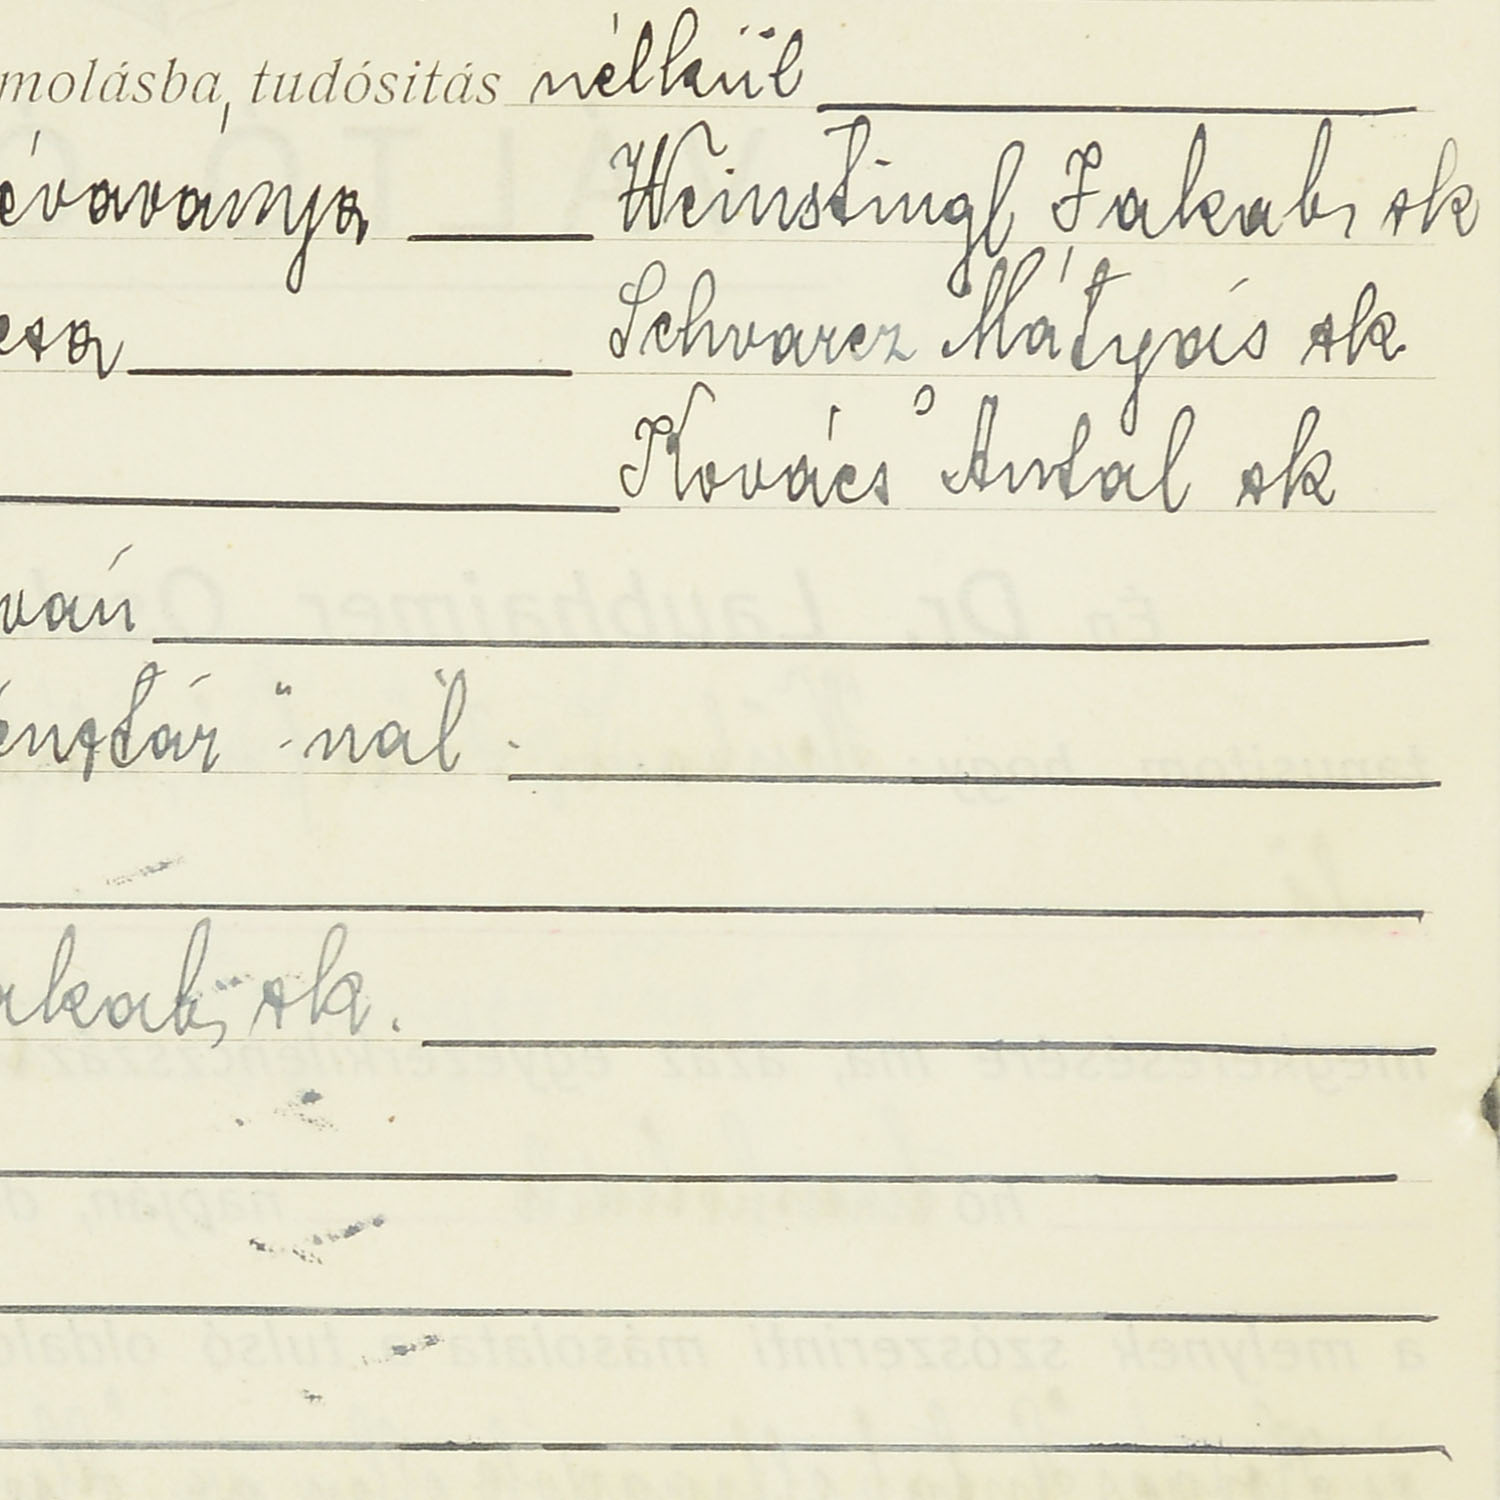 molásba, tudósitás nélkül
évaványa Weinstingl Jakab sk
csa Schvarcz Mátyás sk
Kovács Antal sk
ván
énztár"-nál.
akab sk.